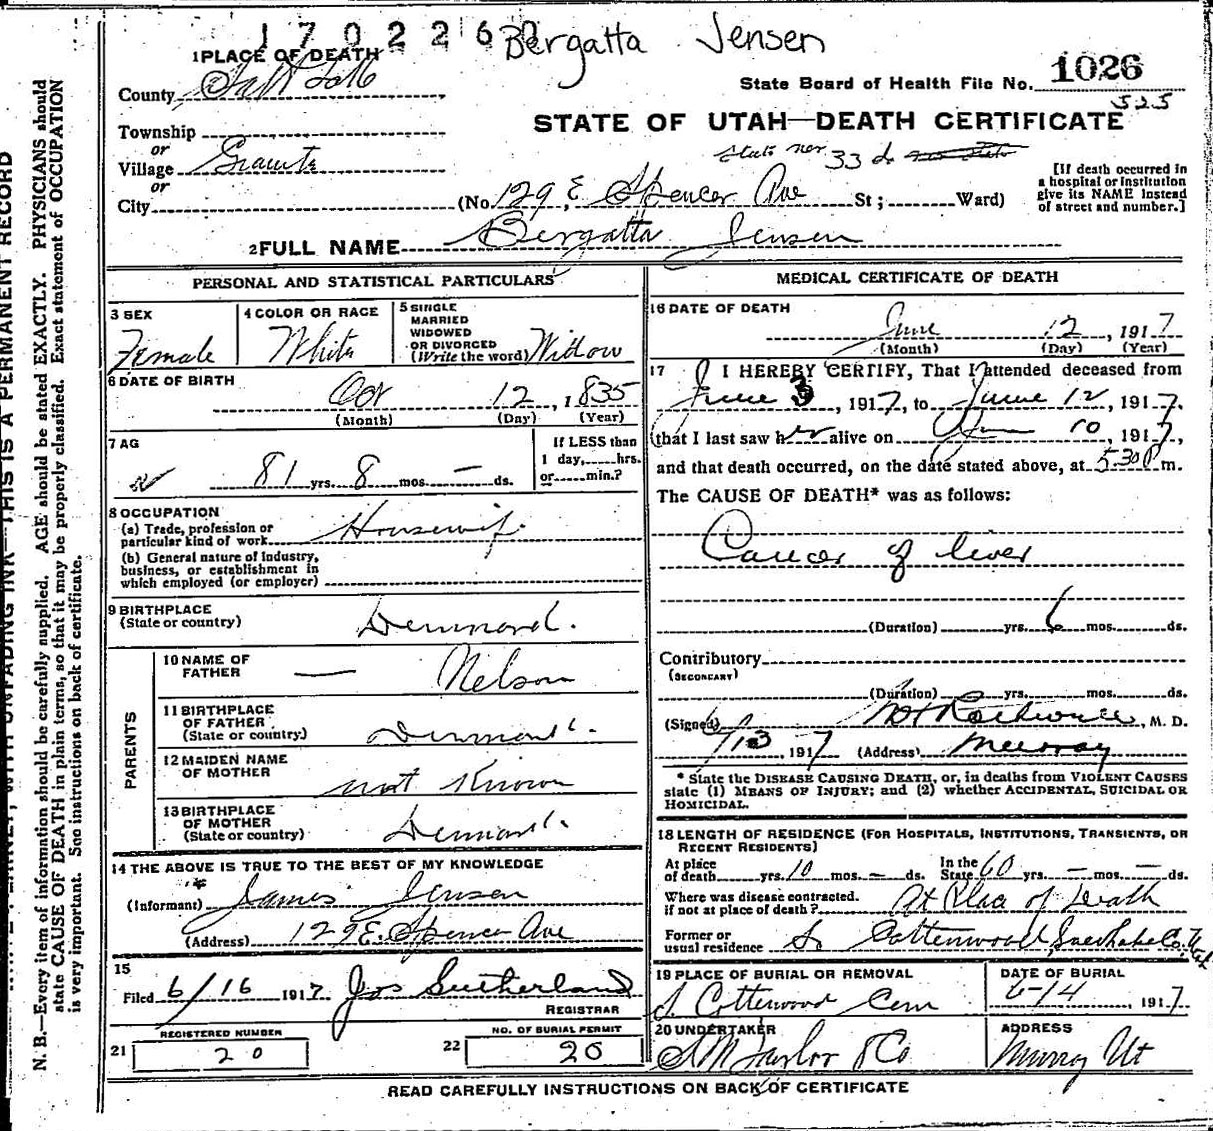 1702260 Bergatta Jensen
1 PLACE OF DEATH
County Salt Lake
State Board of Health File No. 1026
525
Township
STATE OF UTAH—DEATH CERTIFICATE
or
Village Granite
State 33 d
or
City (No. 129 E Spencer Ave St; Ward)
[If death occurred in a hospital or institution give its NAME instead of street and number.]
2 FULL NAME Bergatta Jensen
PERSONAL AND STATISTICAL PARTICULARS
3 SEX Female
4 COLOR OR RACE White
5 SINGLE MARRIED WIDOWED OR DIVORCED (Write the word) Widow
6 DATE OF BIRTH
Oct 12, 1835
(Month) (Day) (Year)
7 AG
81 yrs. 8 mos. — ds.
If LESS than 1 day, hrs. or min.?
8 OCCUPATION
(a) Trade, profession or particular kind of work Housewife
(b) General nature of industry, business, or establishment in which employed (or employer)
9 BIRTHPLACE (State or country) Denmark.
PARENTS
10 NAME OF FATHER — Nelson
11 BIRTHPLACE OF FATHER (State or country) Denmark.
12 MAIDEN NAME OF MOTHER not Known
13 BIRTHPLACE OF MOTHER (State or country) Denmark.
14 THE ABOVE IS TRUE TO THE BEST OF MY KNOWLEDGE
(Informant) James Jensen
(Address) 129 E. Spencer Ave
15
Filed 6/16 1917 Jos Sutherland
REGISTRAR
REGISTERED NUMBER
21 20
NO. OF BURIAL PERMIT
22 20
MEDICAL CERTIFICATE OF DEATH
16 DATE OF DEATH
June 12, 1917
(Month) (Day) (Year)
17 I HEREBY CERTIFY, That I attended deceased from
June 3, 1917, to June 12, 1917,
that I last saw her alive on June 10, 1917,
and that death occurred, on the date stated above, at 5-30 P m.
The CAUSE OF DEATH* was as follows:
Cancer of liver
(Duration) yrs. 6 mos. ds.
Contributory
(SECONDARY)
(Duration) yrs. mos. ds.
(Signed) , M. D.
6/13 1917 (Address) Murray
* State the DISEASE CAUSING DEATH, or, in deaths from VIOLENT CAUSES
state (1) MEANS OF INJURY; and (2) whether ACCIDENTAL, SUICIDAL OR
HOMICIDAL.
18 LENGTH OF RESIDENCE (FOR HOSPITALS, INSTITUTIONS, TRANSIENTS, OR
RECENT RESIDENTS)
At place of death yrs. 10 mos. – ds. In the State 60 yrs. – mos. — ds.
Where was disease contracted. if not at place of death? At Place of Death
Former or usual residence So Cottonwood, Salt Lake Co. Utah
19 PLACE OF BURIAL OR REMOVAL
S. Cottonwood Cem
DATE OF BURIAL
6-14, 1917
20 UNDERTAKER
S M Taylor & Co
ADDRESS
Murray Ut
READ CAREFULLY INSTRUCTIONS ON BACK OF CERTIFICATE
THIS IS A PERMANENT RECORD
N. B.—Every item of information should be carefully supplied. AGE should be stated EXACTLY. PHYSICIANS should
state CAUSE OF DEATH in plain terms, so that it may be properly classified. Exact statement of OCCUPATION
is very important. See instructions on back of certificate.